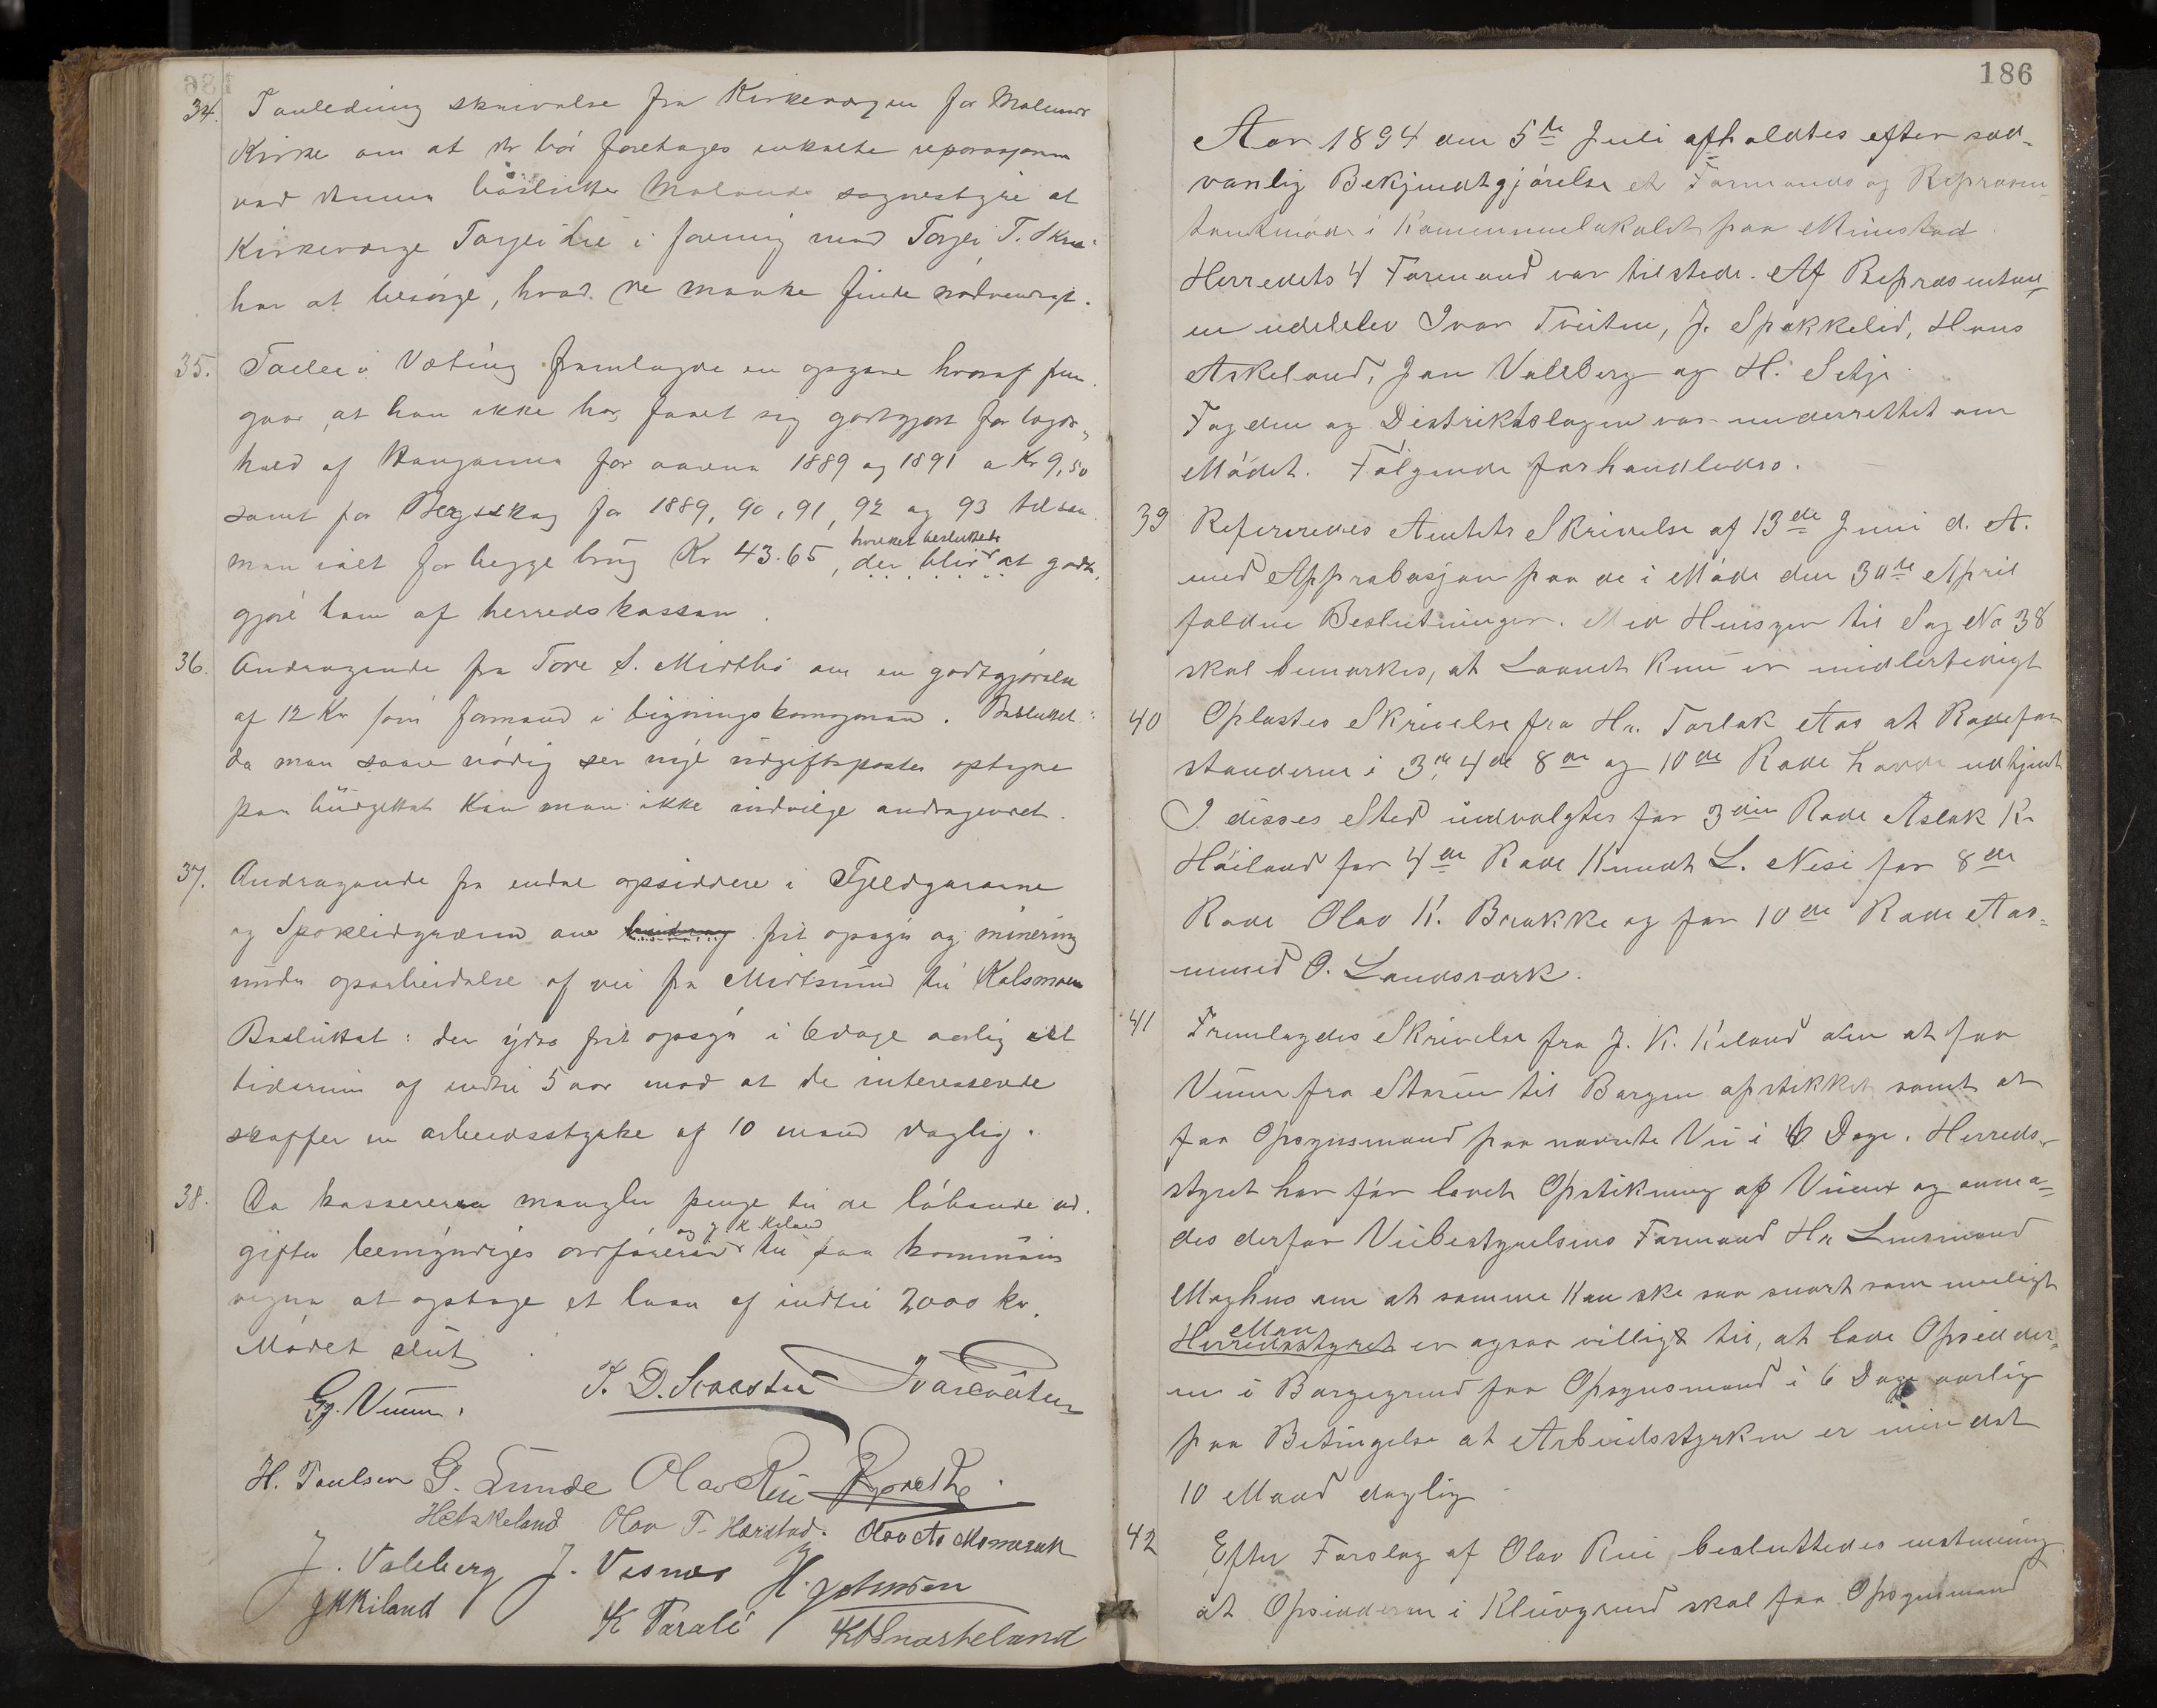 34. I anledning skrivelse fra Kirkevergen for Molands
Kirke om at der bör foretages enkelte reparasjoner
ved denne böslutter Molands sognestyre at
Kirkeverge Torjei Lie i forening med Torjei T. Skree
har at besörge, hvad de maatte finde nödvendigt.
35. Tollei Veting fremlagde en opgave hvoraf frem
gaar, at han ikke har faaet sig godtgjort for vegve
hold af Haugann for aarene 1889 og 1891 a Kr 9,50
samt for Bergsskog for 1889, 90, 91, 92 og 93 tilsam
men ialt for begge brug Kr 43.65, der blir at godt
hvilket besluttedes
gjöre ham af herredskassen.
36. Andragende fra Tore S. Midtbö om en godtgjörelse
af 12 Kr som formand i ligningskomisjonen. Besluttet:
da man saare nödig ser nye udgiftsposter optagne
paa budgettet kan man ikke indvilge andragendet.
37. Andragende fra endel opsiddere i Fjeldgardene
og Spokleidgrænd om bidrag frit opsyn og minering
under oparbeidelse af vei fra Midtsund til Kalsmoen
Besluttet: der ydes frit opsyn i 6 dage aarlig i et
tidsrum af indtil 5 aar mod at de interesserede
skaffer en arbeidsstyrke af 10 mand daglig.
38. Da kassereren mangler penge til de löbende ud
gifter bemyndiges ordföreren til paa kommunens
og J K Kiland
vegne at optage et laan af indtil 2000 kr.
Mödet slut
Gj. Veum. T. D. Svaastu Ivar Tveiten
H. Paulsen G. Lunde Olav Rui
H Askeland Olav T. Harstad. Olav As Momrak
J. Valeberg J. Vesmes H. Johnsen
J K Kiland K Tarali K O Snarteland
186
Aar 1894 den 5te Juli afholdtes efter sæd-
vanlig Bekjendtgjörelse et Formands og Repræsen
tantmöde i Kommunelokalet paa Kunstad.
Herredets 4 Formænd var tilstede. Af Repræsentan
ne udeblev Ivar Tveiten, J. Spokkelid, Hans
Askeland, Jon Valeberg og H. Setje
Fogden og Distriktslægen var underrettet om
Mödet. Fölgende forhandledes.
39 Refereredes Amtets Skrivelse af 13de Juni d. A.
med Approbasjon paa de i Möde den 30te April
faldne Beslutninger. Med Hensyn til Sag No 38
skal bemærkes, at Laanet kun er midlertidigt
40 Oplæstes Skrivelse fra Hr. Torlak Aas at Rodefor
standerne i 3de, 4de 8de og 10de Rode havde udtjent
I disses Sted udvalgtes for 3die Rode Aslak K.
Höiland for 4de Rode Knudt L. Nesi for 8de
Rode Olav K. Brække og for 10de Rode Aas-
mund O. Landsværk.
41 Fremlagdes Skrivelse fra J. K. Kiland om at faa
Veien fra Stosun til Borgen opstikket samt at
faa Opsynsmand paa nævnte Vei i 6 Dage. Herreds-
styret har för lovet Opstikning af Veien og anmo-
des derfor Veibestyrelsens Formand Hr Lensmand
Moghus om at samme kan ske saa snart som muligt
Man
Herredsstyret er ogsaa villigt til, at lade Opsidder
ne i Borgegrend faa Opsynsmand i 6 Dage aarlig
paa Betingelse at Arbeidsstyrken er mindst
10 Mand daglig
42 Efter Forslag af Olav Rui besluttedes enstemmig
at Opsidderne i Kleivgrend skal faa Opsynsmand